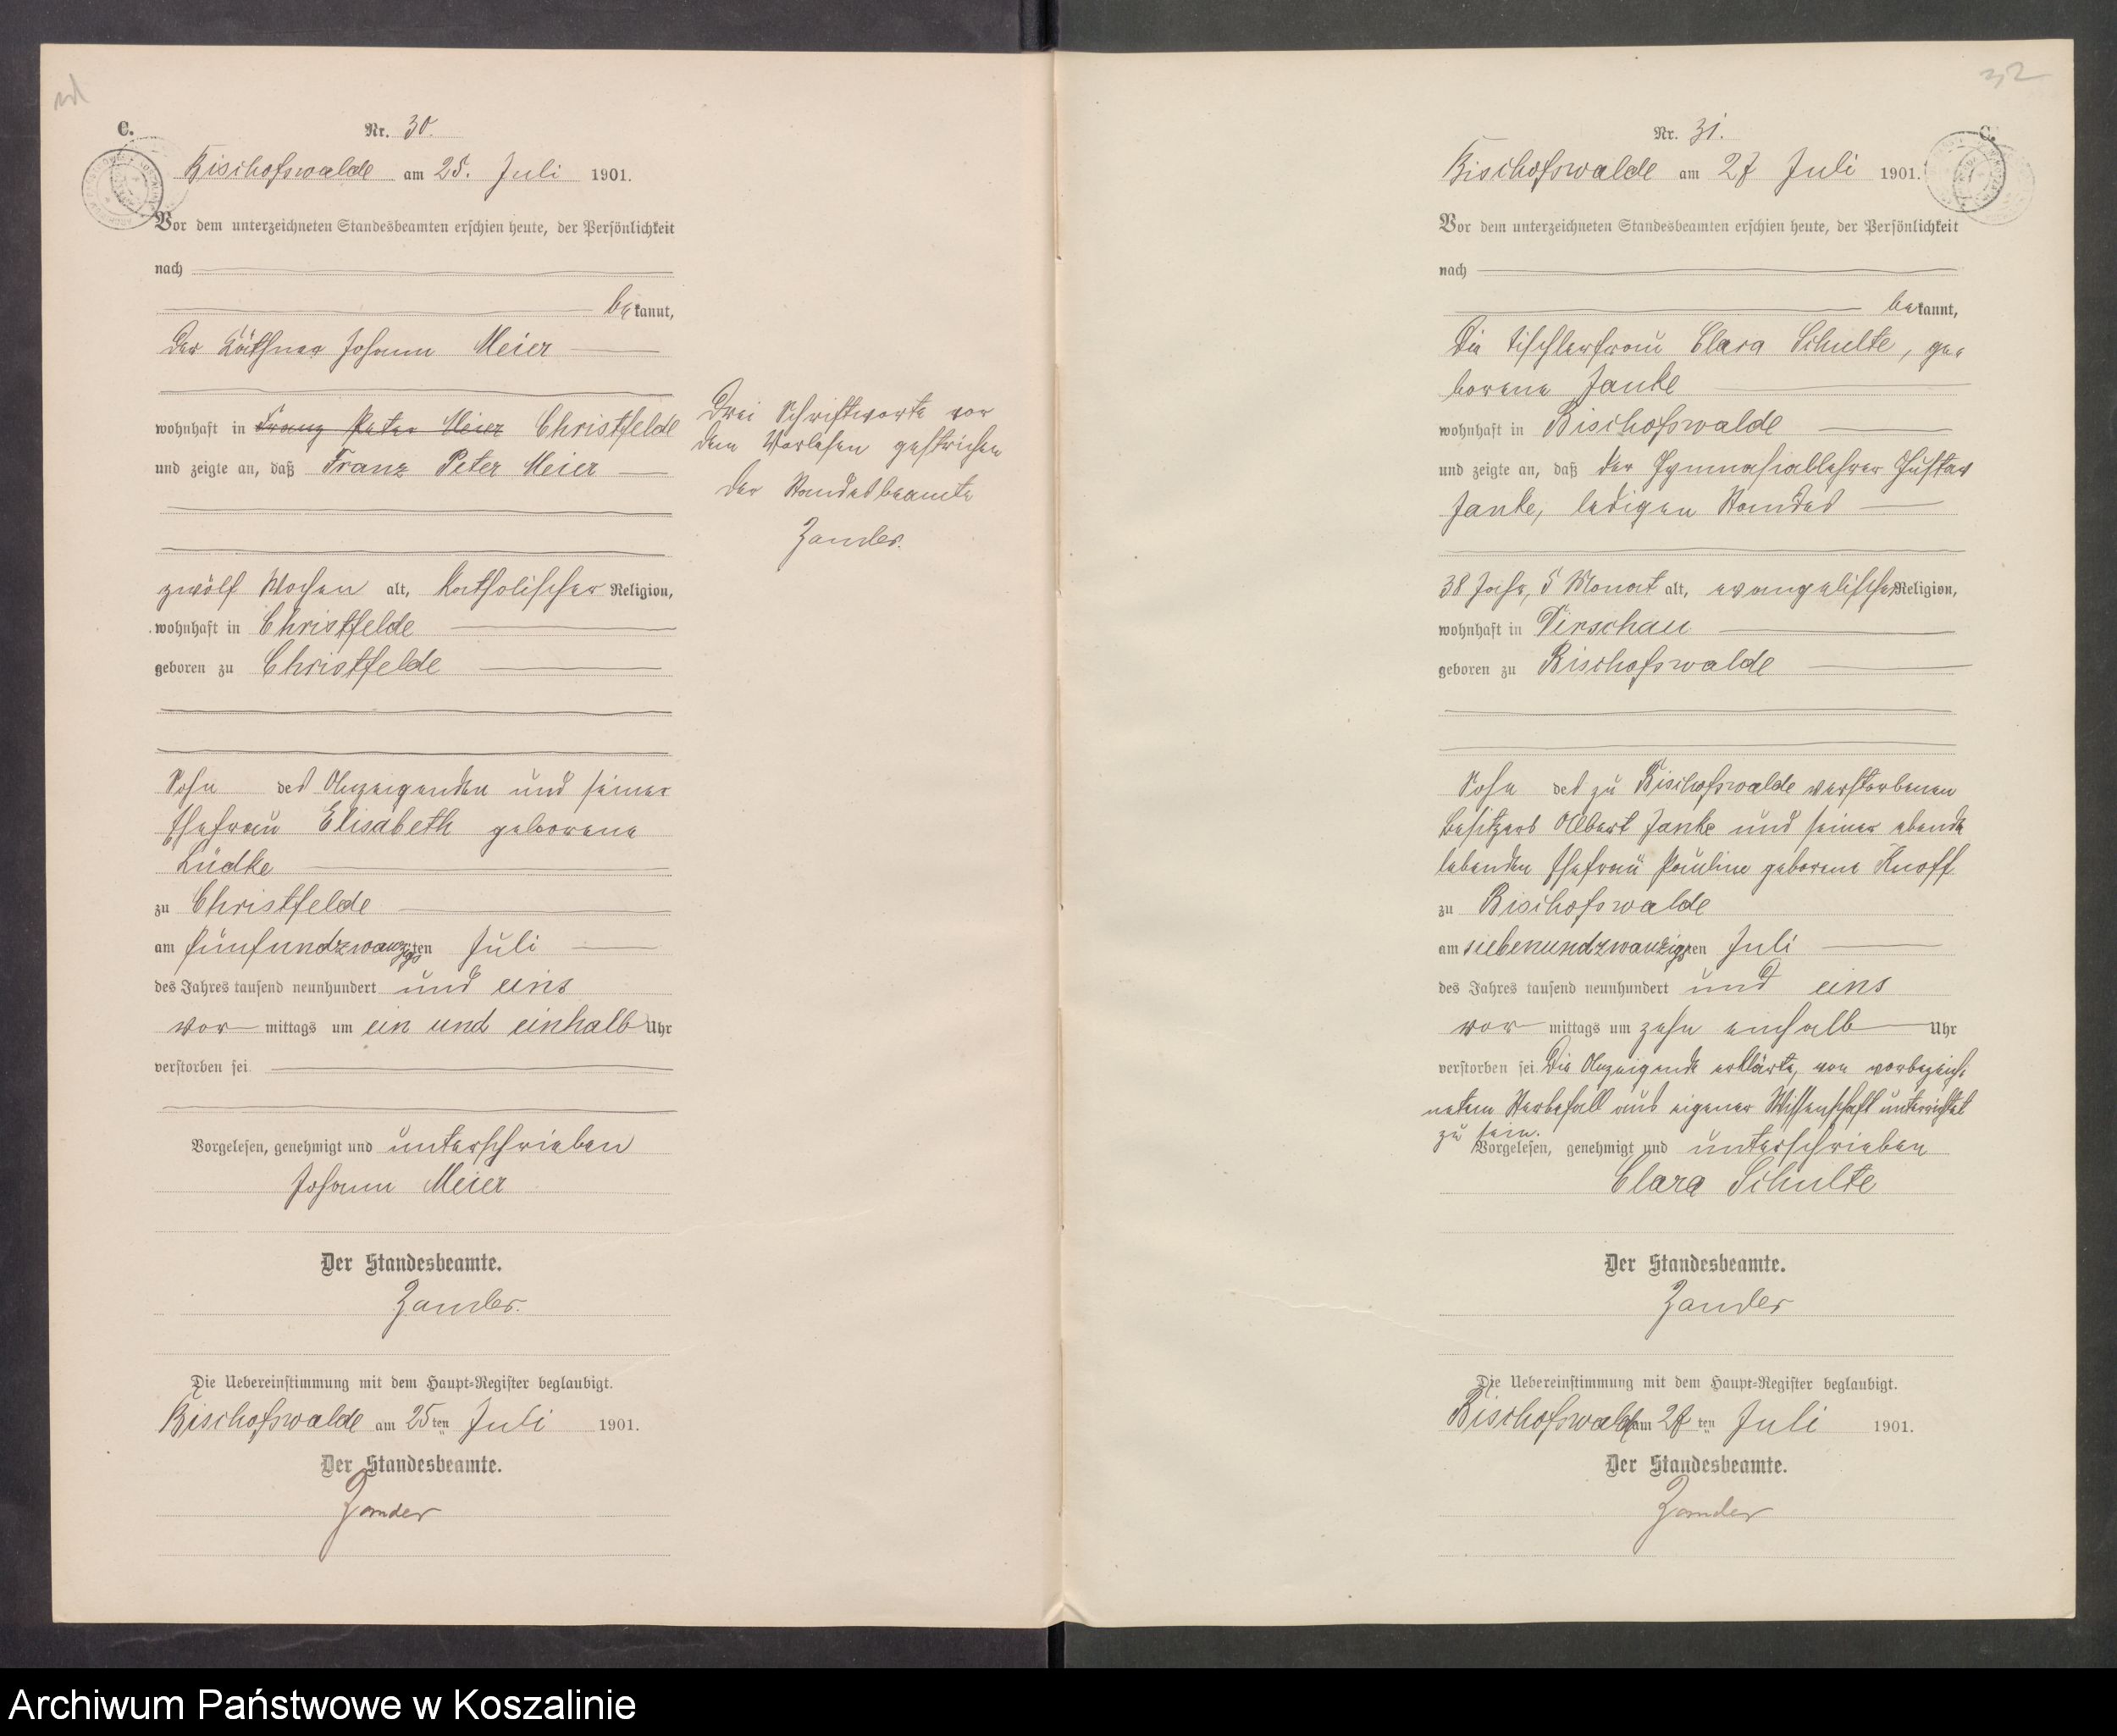 C.
Nr. 30.
Bischofswalde am 25. Juli 1901.
Vor dem unterzeichneten Standesbeamten erschien heute, der Persönlichkeit
nach
bekannt,
der Käthner Johann Meier
wohnhaft in Franz Peter Meier Christfelde
und zeigte an, daß Franz Peter Meier
zwölf Wochen alt, katholischer Religion,
wohnhaft in Christfelde
geboren zu Christfelde
Sohn des Anzeigenden und seiner
Ehefrau Elisabeth geborene
Lüdke
zu Christfelde
am fünfundzwanzigsten Juli
des Jahres tausend neunhundert und eins
vor mittags um ein und einhalb Uhr
verstorben sei
Vorgelesen, genehmigt und unterschrieben
Johann Meier
Der Standesbeamte.
Zander.
Die Uebereinstimmung mit dem Haupt-Register beglaubigt.
Bischofswalde am 25ten Juli 1901.
Der Standesbeamte.
Zander
Drei Schriftworte vor
dem Vorlesen gestrichen
Der Standesbeamte
Zander.
32
C.
Nr. 31.
Bischofswalde am 27 Juli 1901.
Vor dem unterzeichneten Standesbeamten erschien heute, der Persönlichkeit
nach
bekannt,
die Tischlerfrau Clara Schulte, ge-
borene Janke
wohnhaft in Bischofswalde
und zeigte an, daß der Gymnasiallehrer Gustav
Janke, ledigen Standes
38 Jahr, 5 Monat alt, evangelischer Religion,
wohnhaft in Dirschau
geboren zu Bischofswalde
Sohn des zu Bischofswalde verstorbenen
Besitzers Albert Janke und seiner ebenda
lebenden Ehefrau Pauline geborene Knoff
zu Bischofswalde
am siebenundzwanzigsten Juli
des Jahres tausend neunhundert und eins
vor mittags um zehn einhalb Uhr
verstorben sei. Die Anzeigende erklärte, von vorbezeich-
netem Sterbefall aus eigener Wissenschaft unterrichtet
zu sein.
Vorgelesen, genehmigt und unterschrieben
Clara Schulte
Der Standesbeamte.
Zander
Die Uebereinstimmung mit dem Haupt-Register beglaubigt.
Bischofswalde am 27ten Juli 1901.
Der Standesbeamte.
Zander
Archiwum Państwowe w Koszalinie